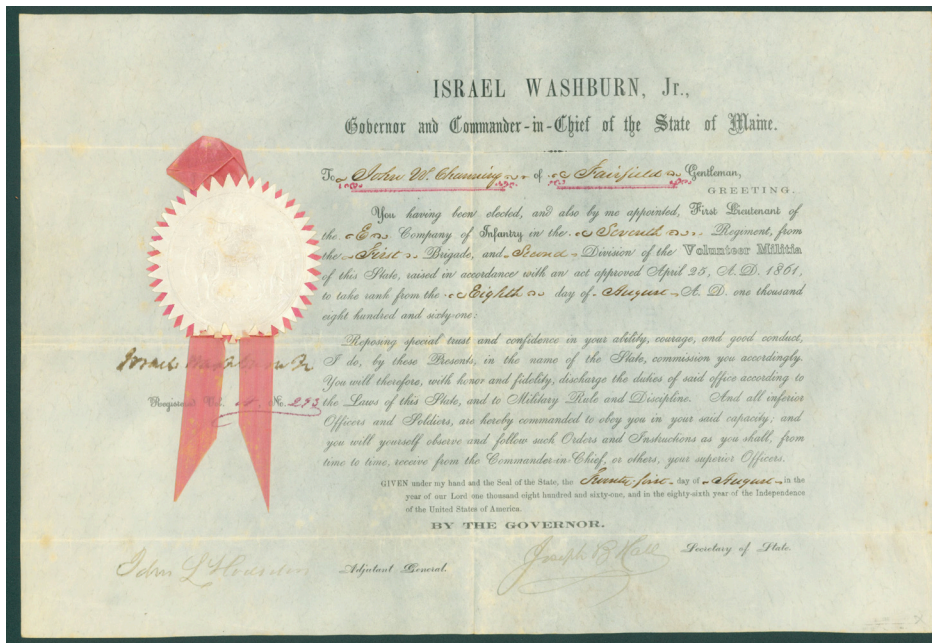 ISRAEL WASHBURN, Jr.,
Governor and Commander-in-Chief of the State of Maine.
To John W. Channing of Fairfield Gentleman,
GREETING.
You having been elected, and also by me appointed, First Lieutenant of
the E Company of Infantry in the Seventh Regiment, from
the First Brigade, and Second Division of the Volunteer Militia
of this State, raised in accordance with an act approved April 25, A. D. 1861,
to take rank from the Eighth day of August A. D. one thousand
eight hundred and sixty-one:
Reposing special trust and confidence in your ability, courage, and good conduct,
I do, by these Presents, in the name of the State, commission you accordingly.
You will therefore, with honor and fidelity, discharge the duties of said office according to
the Laws of this State, and to Military Rule and Discipline. And all inferior
Officers and Soldiers, are hereby commanded to obey you in your said capacity; and
you will yourself observe and follow such Orders and Instructions as you shall, from
time to time, receive from the Commander-in-Chief, or others, your superior Officers.
Israel Washburn Jr
Registered Vol. No. 293
GIVEN under my hand and the Seal of the State, the Twenty-first day of August in the
year of our Lord one thousand eight hundred and sixty-one, and in the eighty-sixth year of the Independence
of the United States of America.
BY THE GOVERNOR.
Joseph B Hall Secretary of State.
John L Hodsdon Adjutant General.